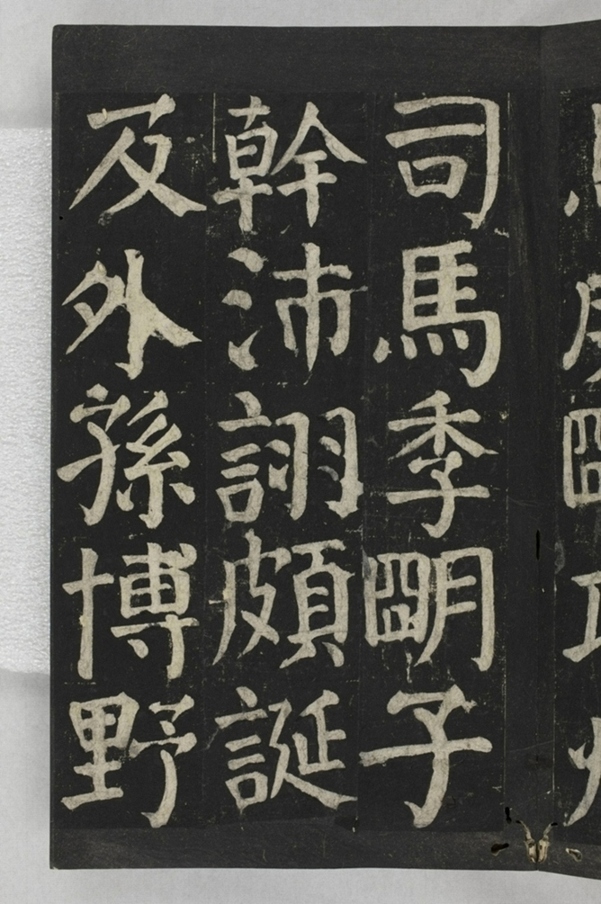 司馬季朙子
幹沛詡頗誕
及外孫博野